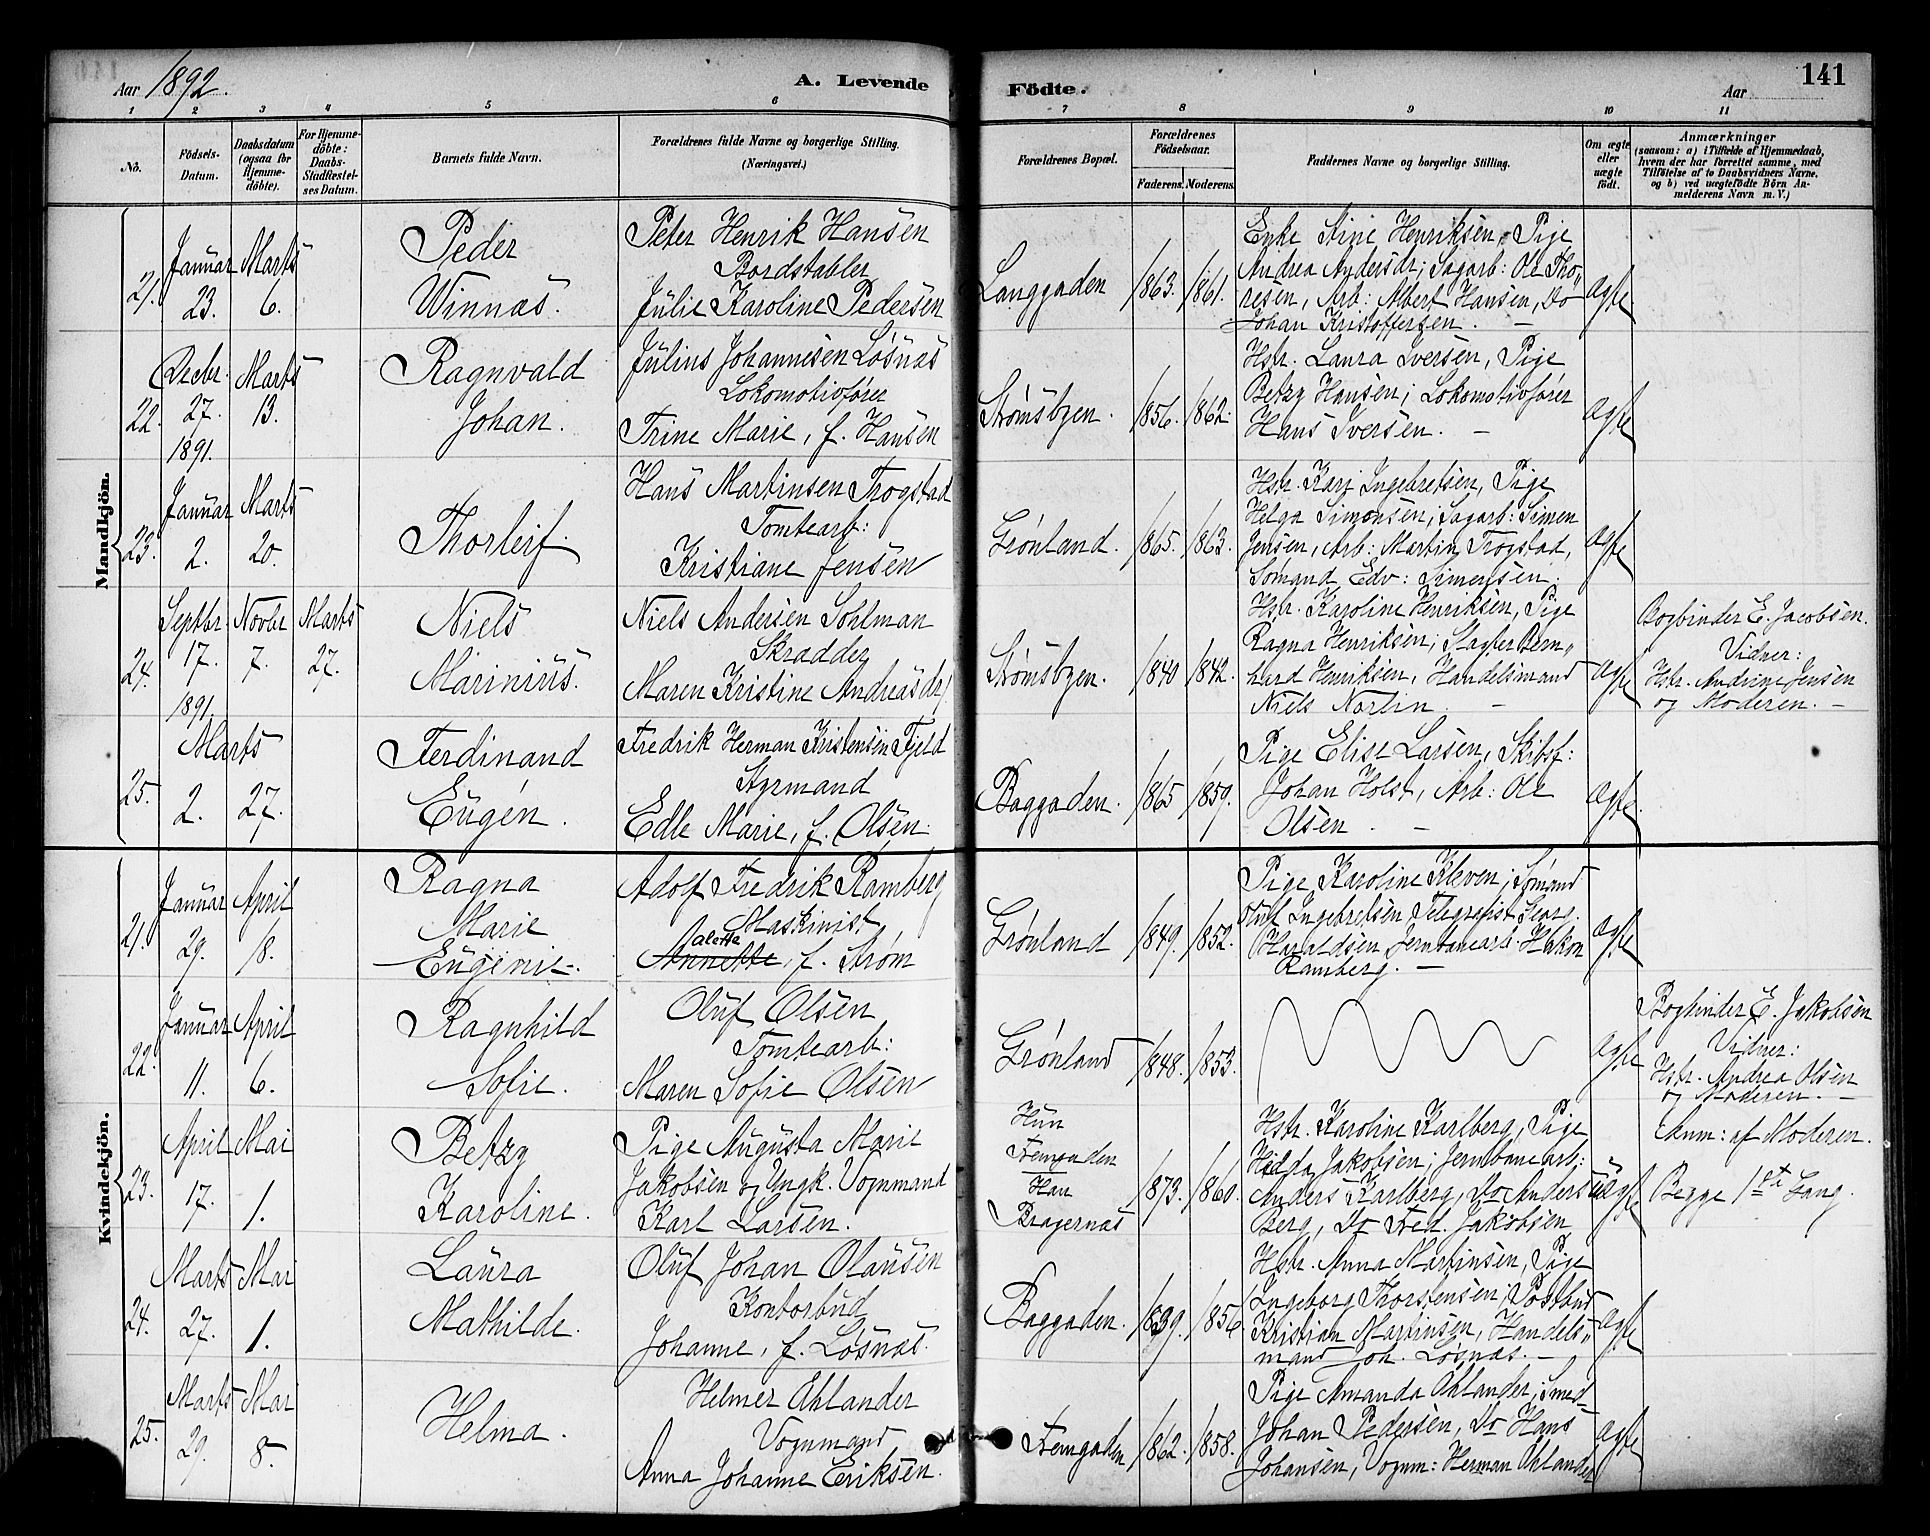 141
Aar 1892.
A. Levende Födte.
Aar
1 2 3 4 5 6 7 8 9 10 11
No.
Födsels-Datum.
Daabsdatum (ogsaa för Hjemmedöbte).
For Hjemmedöbte: Daabs-Stadfæstelses Datum.
Barnets fulde Navn.
Forældrenes fulde Navne og borgerlige Stilling.
(Næringsvei.)
Forældrenes Bopæl.
Forældrenes Födselsaar.
Faderens. Moderens.
Faddernes Navne og borgerlige Stilling.
Om ægte eller uægte födt.
Anmærkninger
(saasom: a) i Tilfælde af Hjemmedaab, hvem der har forrettet samme, med Tilföielse af to Daabsvidners Navne, og b) ved uægtefödte Börn Anmelderens Navn m. V.)
Mandkjön.
21. Januar 23. Marts 6.
Peder Winnas.
Peter Henrik Hansen
Bordstabler
Julie Karoline Pedersen
Langgaden 1863. 1861.
Enke Stine Henriksen, Pige
Andrea Andersdr; Sagarb: Ole Tho„
resen, Arb: Albert Hansen, Do
Johan Kristoffersen. –
ægte
22. Decbr. 27. 1891. Marts 13.
Ragnvald Johan.
Julius Johannesen Løsnæs
Lokomotivfører
Trine Marie, f. Hansen
Strømsbyen. 1856. 1862.
Hstr. Laura Iversen, Pige
Betzy Hansen; Lokomotivfører
Hans Iversen. –
ægte
23. Januar 2. Marts 20.
Thorleif.
Hans Martinsen Trogstad
Tomtearb:
Kristiane Jensen
Grønland. 1865. 1863.
Hstr. Kari Ingebretsen, Pige
Helga Simonsen; Sagarb: Simen
Jensen, Arb: Martin Trogstad,
Sømand Edv: Simensen.
ægte
24. Septbr. 17. 1891 Novbr 7. Marts 27.
Niels Marinius.
Niels Andersen Sohlman
Skrædder
Maren Kristine Andreasdr
Strømsbyen. 1840 1842.
Hstr. Karoline Henriksen, Pige
Ragna Henriksen; Slagter Bern„
hard Henriksen, Handelsmand
Niels Norlin. –
ægte
Bogbinder E. Jacobsen.
Vidner:
Hstr. Andrine Jensen
og Moderen. –
25. Marts 2. 27.
Ferdinand Eugén.
Fredrik Herman Kristensen Fjeld
Styrmand
Edle Marie, f. Olsen.
Baggaden. 1865 1859.
Pige Elise Larsen, Skibsf:
Johan Holst, Arb: Ole
Olsen. –
ægte.
Kvindekjön.
21. Januar 29. April 18.
Ragna Marie Eugenie.
Adolf Fredrik Ramberg
Maskinist
Valette
Annette, f. Strøm
Grønland 1849. 1852.
Pige Karoline Kleven; Sømand
Oluf Ingebretsen Telegrafist Georg
Haraldsen Jernbanearb. Hakon
Ramberg. –
ægte
22. Januar 11. April 6.
Ragnhild Sofie.
Oluf Olsen
Tomtearb:
Maren Sofie Olsen
Grønland 1848. 1853.
ægte
Bogbinder E. Jakobsen
Vidner:
Hstr. Andrea Olsen
og Moderen. –
23. April 17. Mai 1.
Betzy Karoline.
Pige Augusta Marie
Jakobsen og Ungk. Vognmand
Karl Larsen.
Hun
Femgaden
Han
Bragernæs
1873. 1860.
Hstr. Karoline Karlberg, Pige
Hilda Jakobsen; Jernbanearb:
Anders Karlberg, Do Anders
Berg, Do Fred. Jakobsen
uægte
Anm: af Moderen.
Begge 1st Gang.
24. Marts 27. Mai 1.
Laura Mathilde.
Oluf Johan Olausen
Kontorbud
Johanne, f. Løsnæs.
Baggaden. 1839. 1856
Hstr. Anna Martinsen, Pige
Ingeborg Thorstensen; Postbud
Kristian Martinsen, Handels„
mand Joh. Løsnæs. –
ægte
25. Marts 29. Mai 8.
Helma.
Helmer Ahlander
Vognmand
Anna Johanne Eriksen.
Femgaden 1862. 1858.
Pige Amanda Ahlander; Smed
Johan Pedersen, Do Hans
Johansen, Vognm: Herman Ahlander
ægte